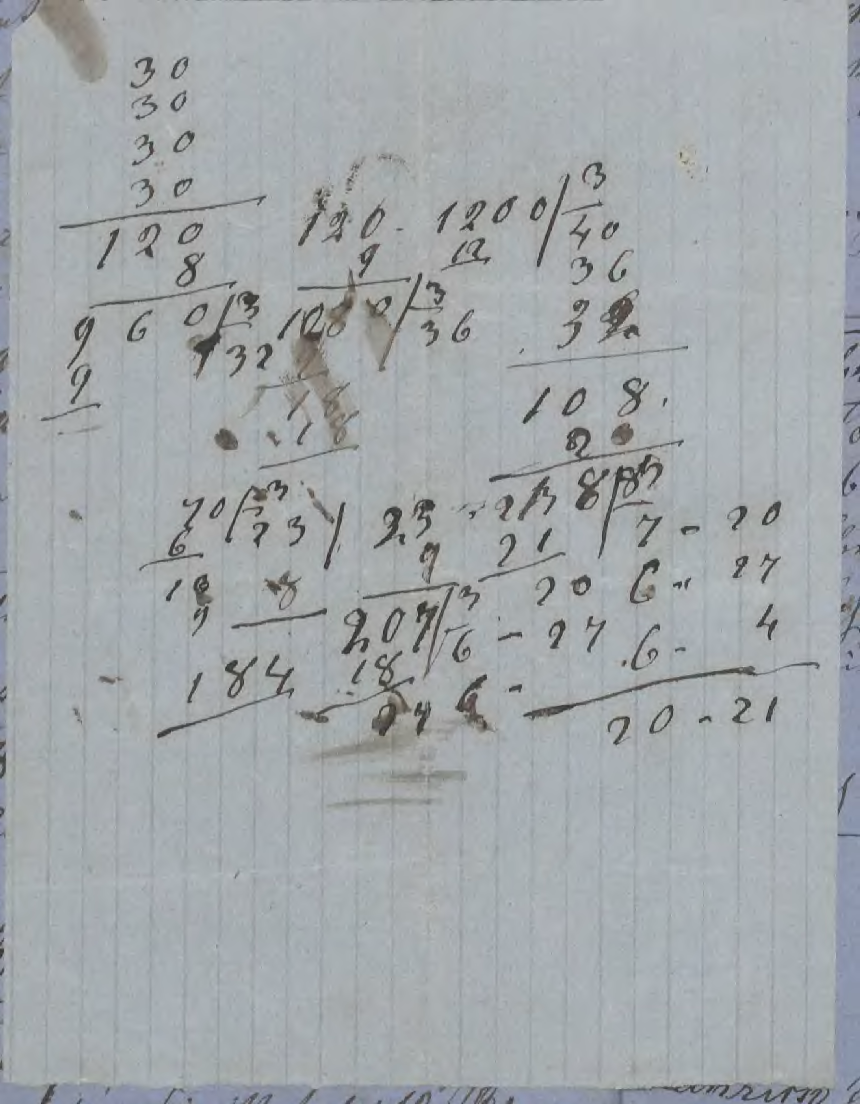 30
30
30
30
120
8
960/3
132
9
120
9
1080/3
36
18
18
1200/3
12
40
36
32
108
2
70/3
6 23
10
9 8
184
23
9
207/3
18 6 - 27
27 6 -
218/3
21 7 - 20
20 6 - 27
6 - 4
20 - 21